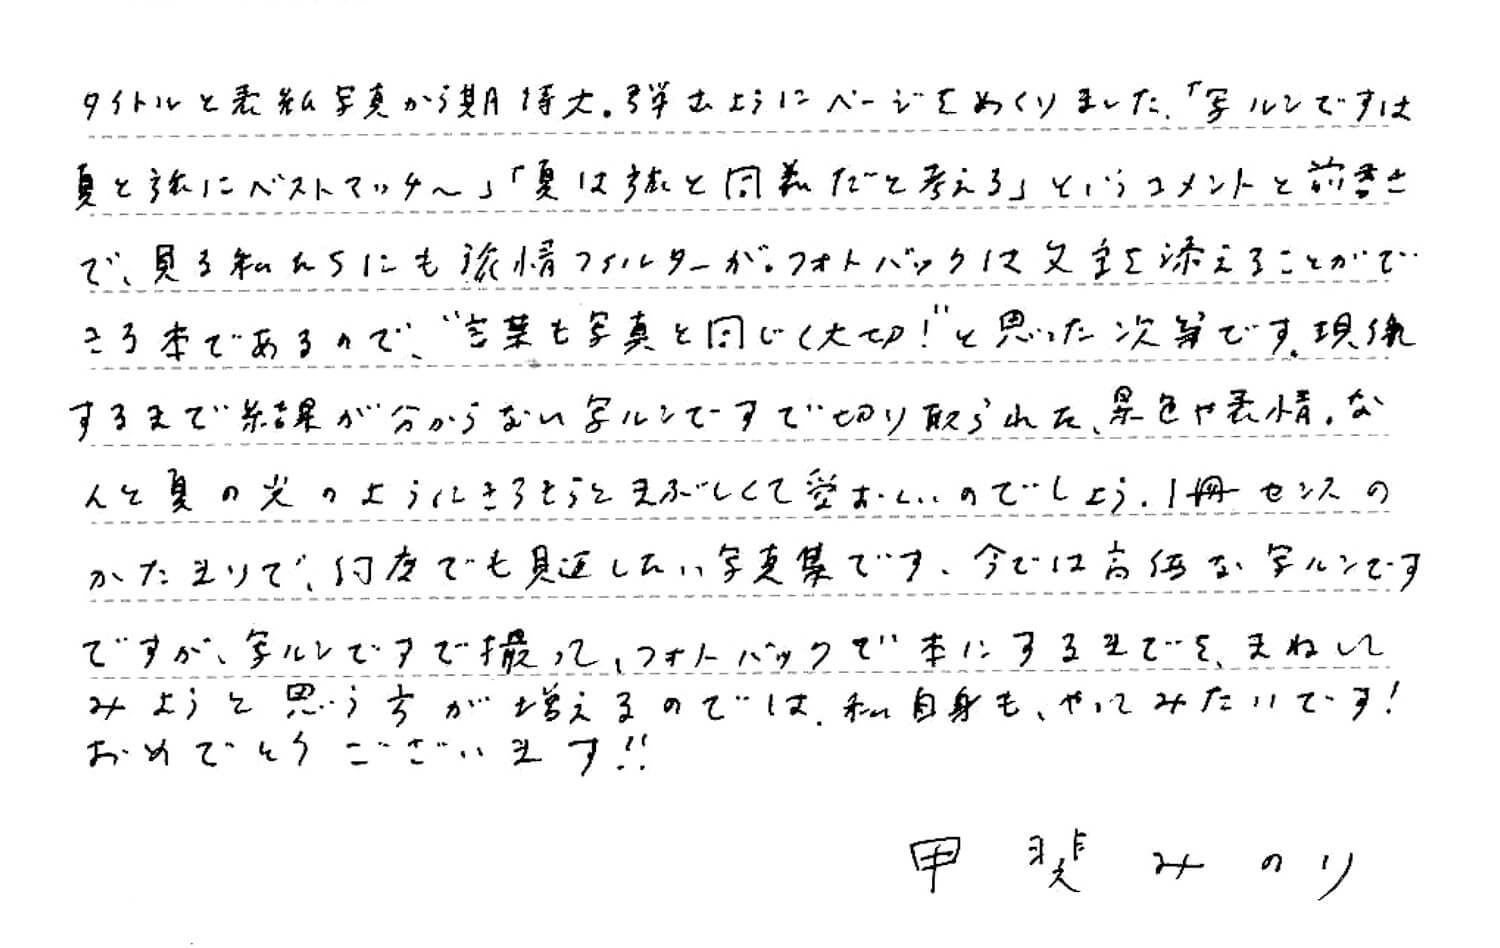 タイトルと表紙写真から期待大。弾むようにページをめくりました。「写ルンですは
夏と旅にベストマッチ〜」「夏は旅と同義だと考える」というコメントと前書き
で、見る私たちにも旅情フィルターが。フォトバックは文字を添えることがで
きる本であるので、“言葉も写真と同じく大切!”と思った次第です。現像
するまで結果が分からない写ルンですで切り取られた、景色や表情。な
んと夏の光のようにきらきらとまぶしくて愛おしいのでしょう。1冊センスの
かたまりで、何度でも見返したい写真集です。今では高価な写ルンです
ですが、写ルンですで撮って、フォトバックで本にするまでを、まねして
みようと思う方が増えるのでは。私自身も、やってみたいです!
おめでとうございます!!
甲斐みのり